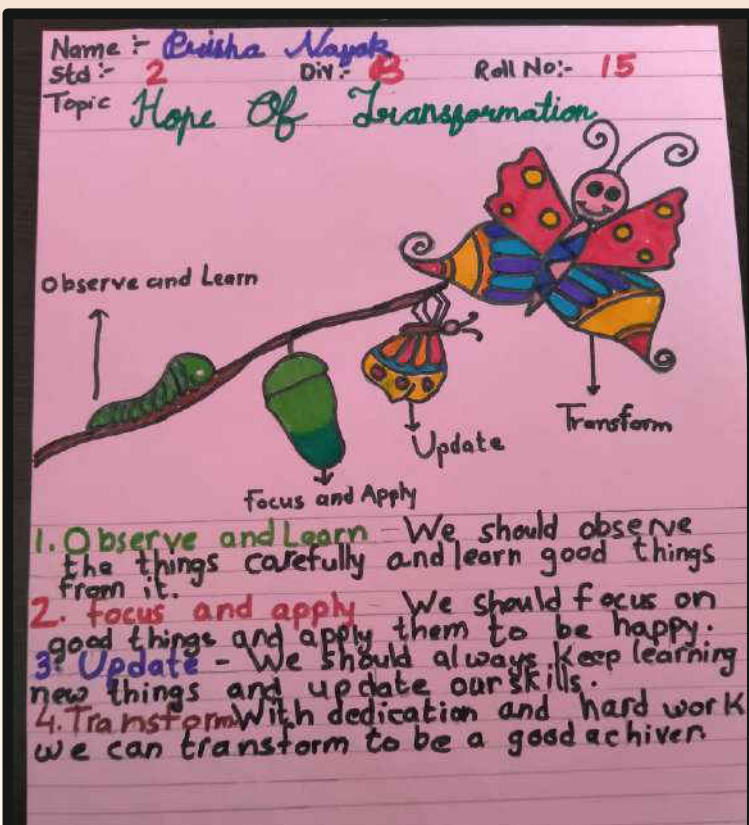 Name :- Prisha Nayak
Std :- 2 Div :- B Roll No:- 15
Topic Hope Of Transformation
Observe and Learn
Transform
Update
Focus and Apply
1. Observe and Learn - We should observe
the things carefully and learn good things
from it.
2. focus and apply - We should focus on
good things and apply them to be happy.
3. Update - We should always keep learning
new things and update our skills.
4. Transform With dedication and hard work
we can transform to be a good achiver